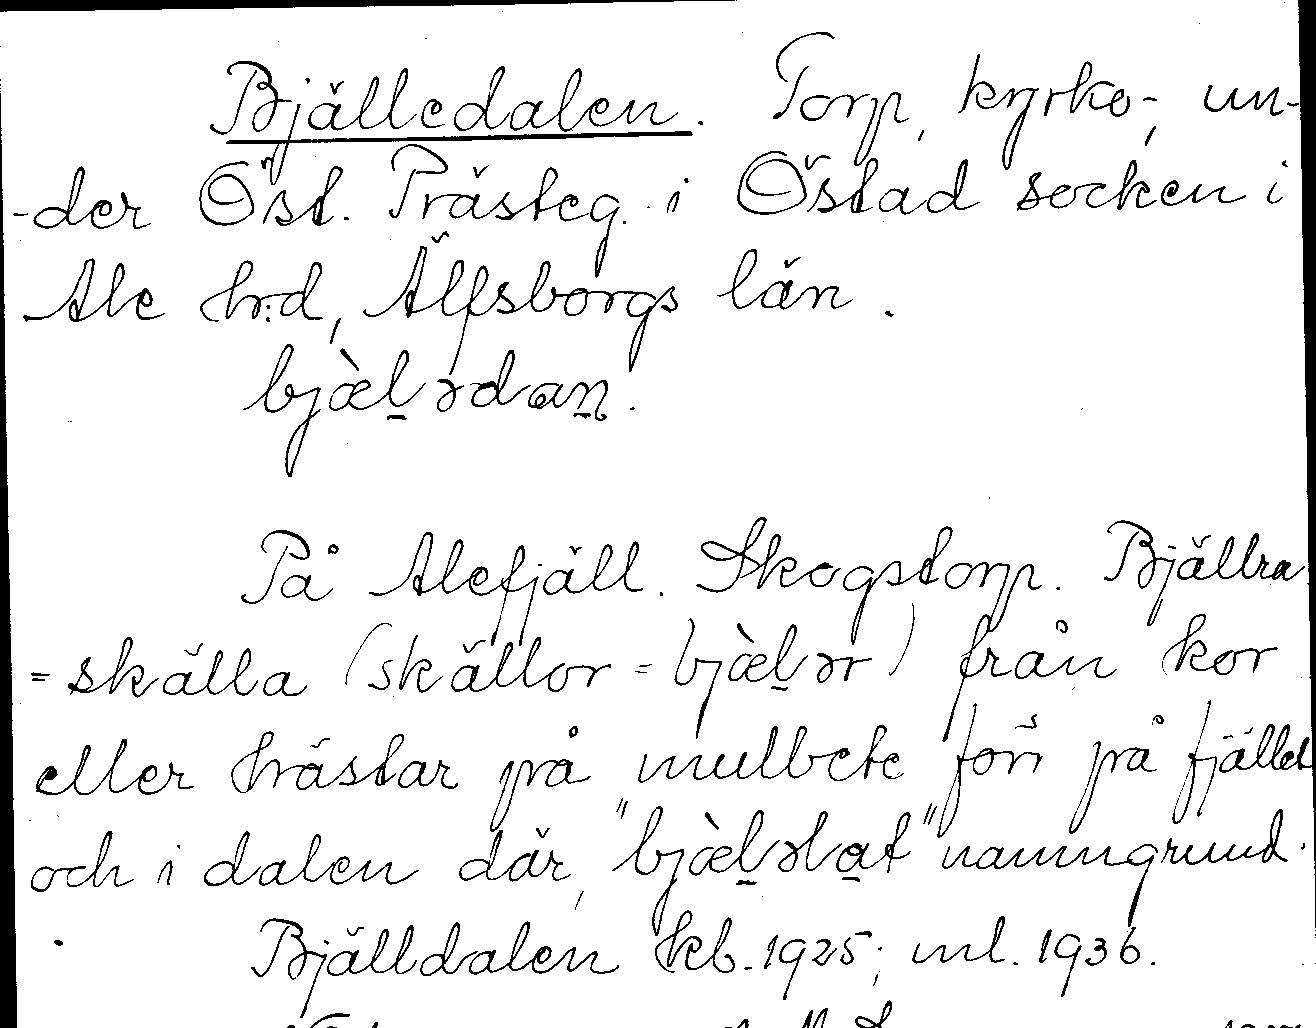 Bjälledalen. Torp, kyrko-, un-
-der Öst. Prästeg. i Östad socken i
Ale h:d, Älfsborgs län.
bjæ̀l̠ədan̠.
På Alefjäll. Skogstorp. Bjällra
= skälla (skällor = bjæ̀l̠ər) från kor
eller hästar på mulbete förr på fjället
och i dalen där, "bjæ̀l̠əlat" namngrund.
Bjälldalen kb. 1925; ml. 1936.